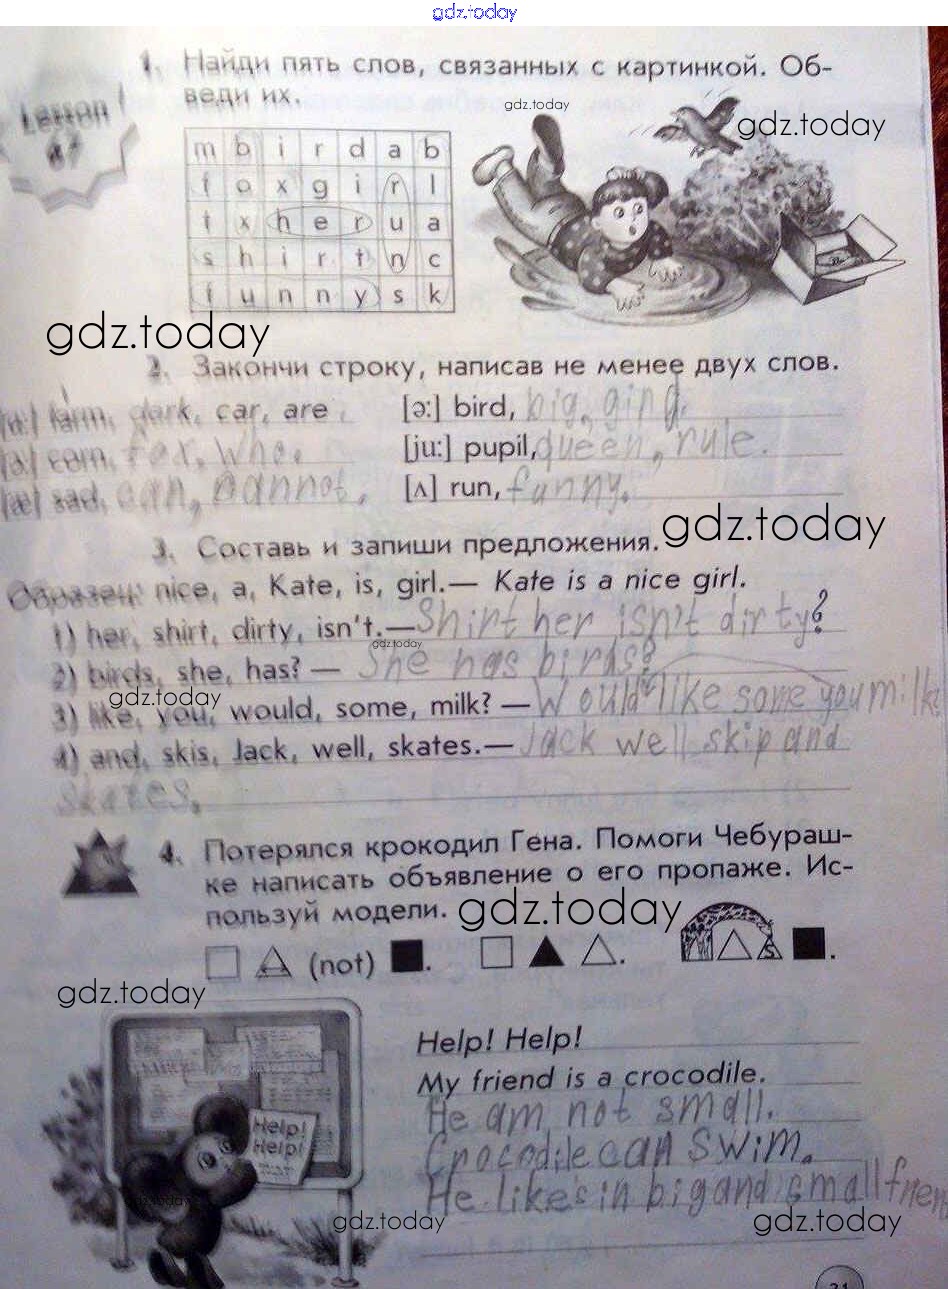 gdz.today
1. Найди пять слов, связанных с картинкой. Об-
веди их.
gdz.today
gdz.today
Lesson
m b i r d a b
f o x g i r l
t x h e r u a
s h i r t n c
f u n n y s k
gdz.today
2. Закончи строку, написав не менее двух слов.
farm, dark, car, are.
[ə:] bird, big,
corn, fox, who.
[ju:] pupil, queen, rule.
[æ] sad, can, cannot.
[ʌ] run, funny.
gdz.today
3. Составь и запиши предложения.
Образец: nice, a, Kate, is, girl.— Kate is a nice girl.
1) her, shirt, dirty, isn't.— Shirt her isn't dirty?
gdz.today
2) birds, she, has? — She has birds?
gdz.today
3) like, you, would, some, milk? — Would like some you milk
4) and, skis, Jack, well, skates.— Jack well skip and
skates.
4. Потерялся крокодил Гена. Помоги Чебураш-
ке написать объявление о его пропаже. Ис-
пользуй модели.
gdz.today
(not) . . s .
gdz.today
Help! Help!
My friend is a crocodile.
He am not small.
Help!
Help!
Crocodile can swim.
He likes in big and small
gdz.today
gdz.today
31